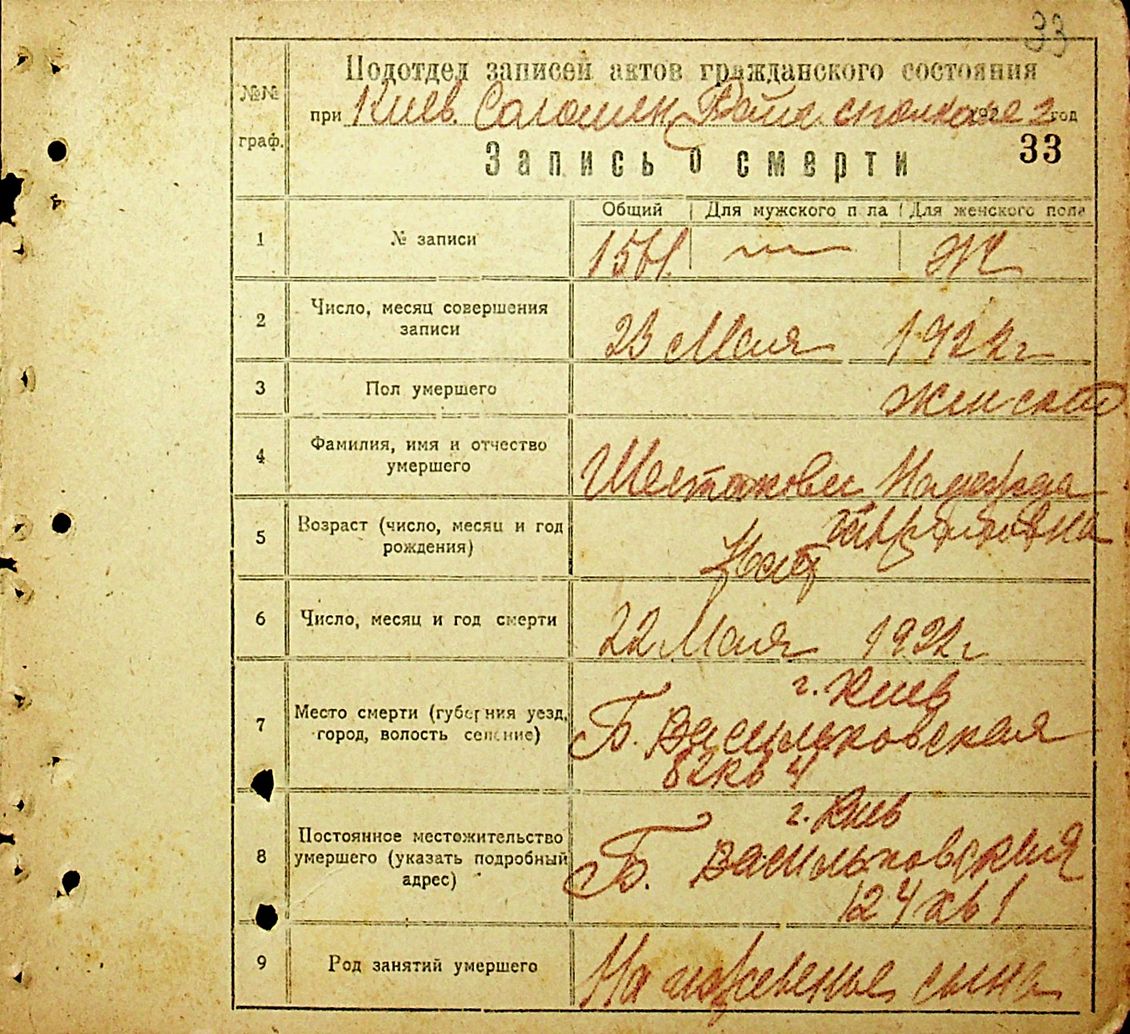 33
№№ граф.
Подотдел записей актов гражданского состояния
при Киев. Соломен. 1922 год
Запись о смерти 33
Общий Для мужского п ла Для женского пола
1 № записи 1561. — Ж
2 Число, месяц совершения записи 23 Мая 1922 г
3 Пол умершего Женский
4 Фамилия, имя и отчество умершего Шестакова Надежда
5 Возраст (число, месяц и год рождения)
6 Число, месяц и год смерти 22 Мая 1922 г
7 Место смерти (губерния уезд, город, волость селение) г. Киев
Б. Васильковская
82 кв 4
8 Постоянное местожительство умершего (указать подробный адрес) г. Киев
Б. Васильковская
124 кв 1
9 Род занятий умершего На иждевенье сына